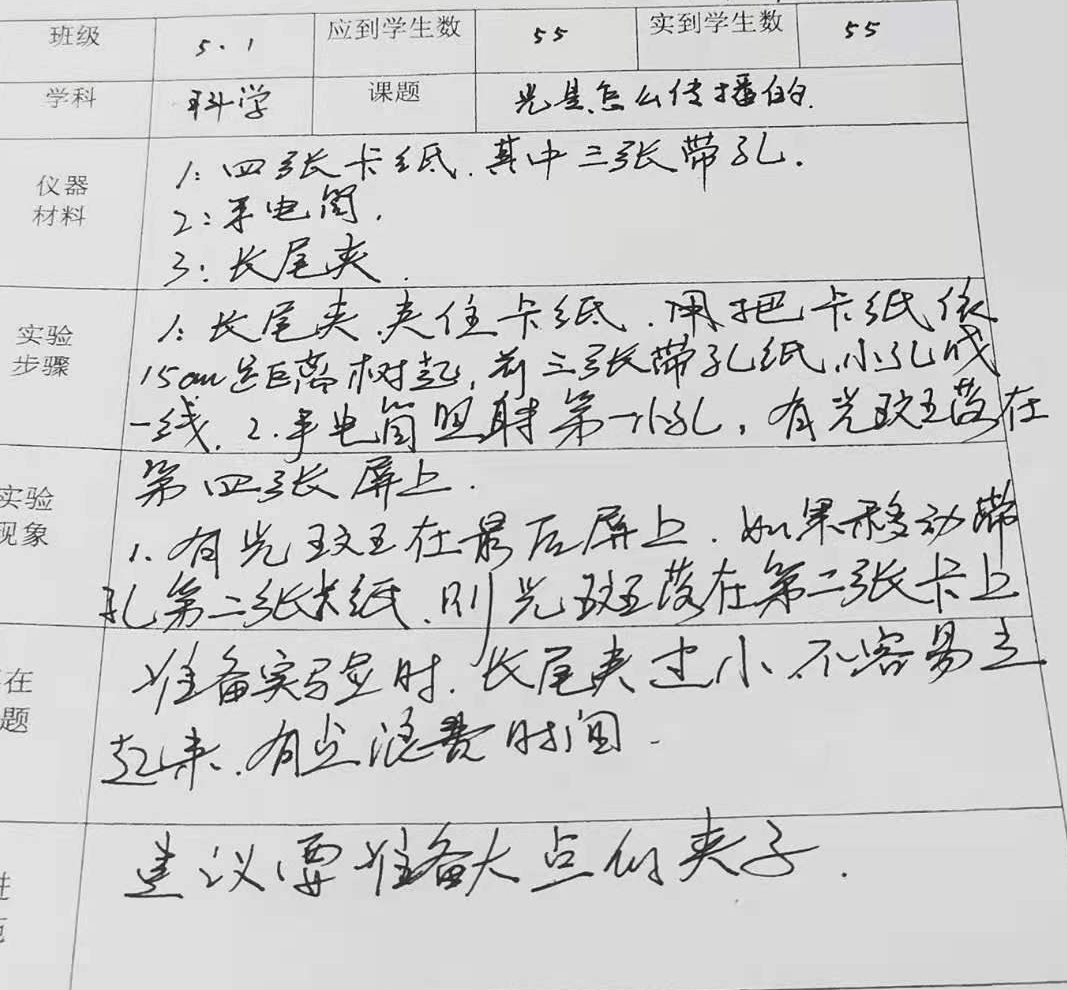 班级 5.1 应到学生数 55 实到学生数 55
学科 科学 课题 光是怎么传播的.
仪器
材料
1: 四张卡纸.其中三张带孔.
2:手电筒.
3:长尾夹.
实验
步骤
1:长尾夹夹住卡纸.用把卡纸依
15cm 距离树起,前三张带孔纸,小孔成
一线. 2.手电筒照射第一小孔,有光斑落在
第四张屏上.
实验
现象
1.有光斑在最后屏上.如果移动带
孔第二张卡纸.则光斑落在第二张卡上
在
题
准备实验时.长尾夹过小.不容易立
起来.有点浪费时间.
建议要准备大点的夹子.